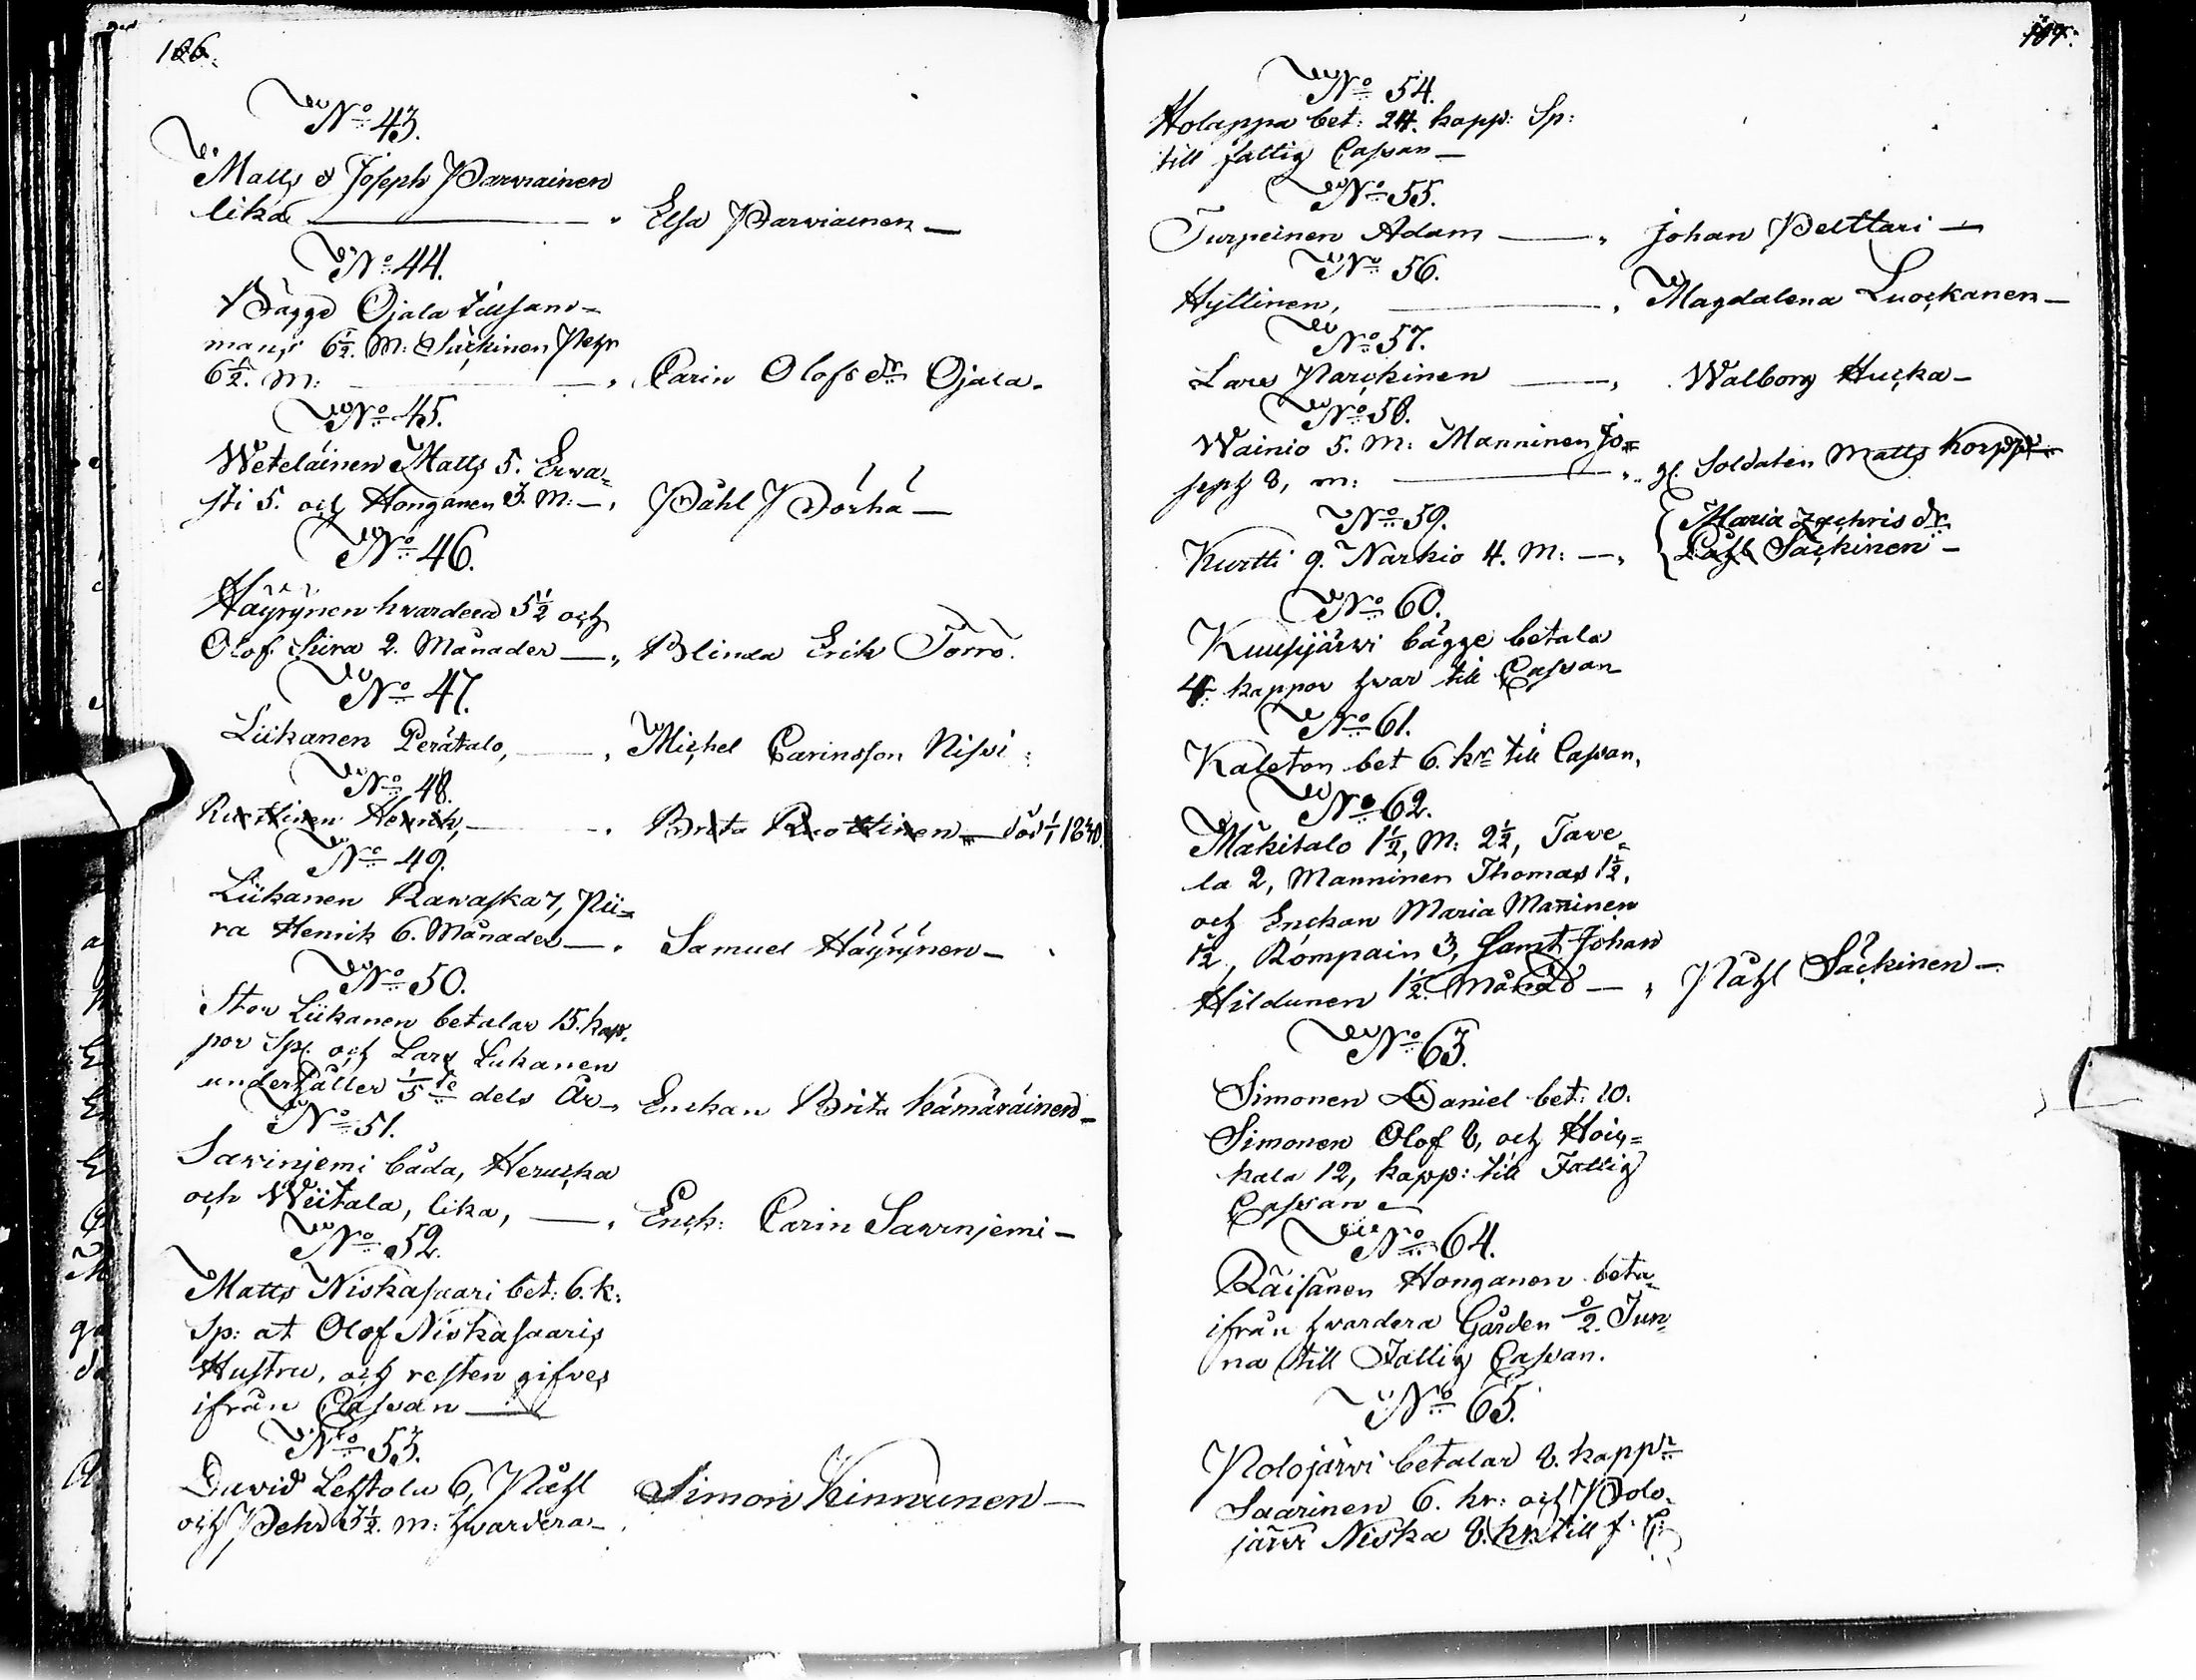 186.
No 43.
Matts & Joseph Parviainen
lika — Elsa Parviainen —
No 44.
Bägge Ojala tillsam-
mans 6½. M: Säckinen Pehr
6½. M: — Carin Olofsdr Ojala.
No 45.
Weteläinen Matts 5. Erwa-
sti 5. och Honganen 3. M: — Påhl Pörhä —
No 46.
Häyrynen hvardera 5½ och
Olof Siira 2. Månader — Blinda Erik Torro.
No 47.
Liikanen Perätalo, — Michel Carinsson Nissi:
No 48.
Ruottinen Henrik, — Brita Ruottinen — död 1/1 1840.
No 49.
Liikanen Rawaska 7, Pii-
ra Henrik 6. Månader — Samuel Häyrynen —
No 50.
Stor Liikanen betalar 15. kap-
por Sp. och Lars Liikanen
underhåller 1/5te dels År — Enckan Brita Kämäräinen —
No 51.
Sarvinjemi båda, Heruska
och Wiitala, lika, — Enck: Carin Sarvinjemi —
No 52.
Matts Niskasaari bet: 6. k:
Sp: at Olof Niskasaaris
Hustru, och resten gifves
ifrån Cassan —
No 53.
David Lehtola 6, Påhl
och Pehr 3½. M: hvardera — Simon Kinnunen —
No 54.
Holappa bet: 24. kapp: Sp:
till fattig Cassan —
No 55.
Turpeinen Adam — Johan Pelttari —
No 56.
Hyttinen, — Magdalena Luockanen —
No 57.
Lars Karckinen — Walborg Hucka —
No 58.
Wainio 5. M: Manninen Jo-
seph 8, m: — gl. Soldaten Matts Korppi
No 59.
Kurtti 9. Narkio 4. M: — Maria Zachris dr
Påhl Säckinen —
No 60.
Kuusijärvi bägge betala
4. kappor hvar till Cassan
No 61.
Kaleton bet 6. kr till Cassan,
No 62.
Mäkitalo 1½, M: 2½, Tave-
la 2, Manninen Thomas 1½,
och Enckan Maria Maninen
1½, Römpäin 3, samt Johan
Hildunen 1½. Månad — Påhl Säckinen —
No 63.
Simonen Daniel bet: 10.
Simonen Olof 8, och Hoic-
kala 12, kapp: till Fattig
Cassan —
No 64.
Räisänen Honganen beta
ifrån hvardera Gården ½. Tun-
na till Fattig Cassan.
No 65.
Polojärvi betalar 8. kappr
Saarinen 6. kr: och Polo-
järvi Niska 8. kr. till f. C: